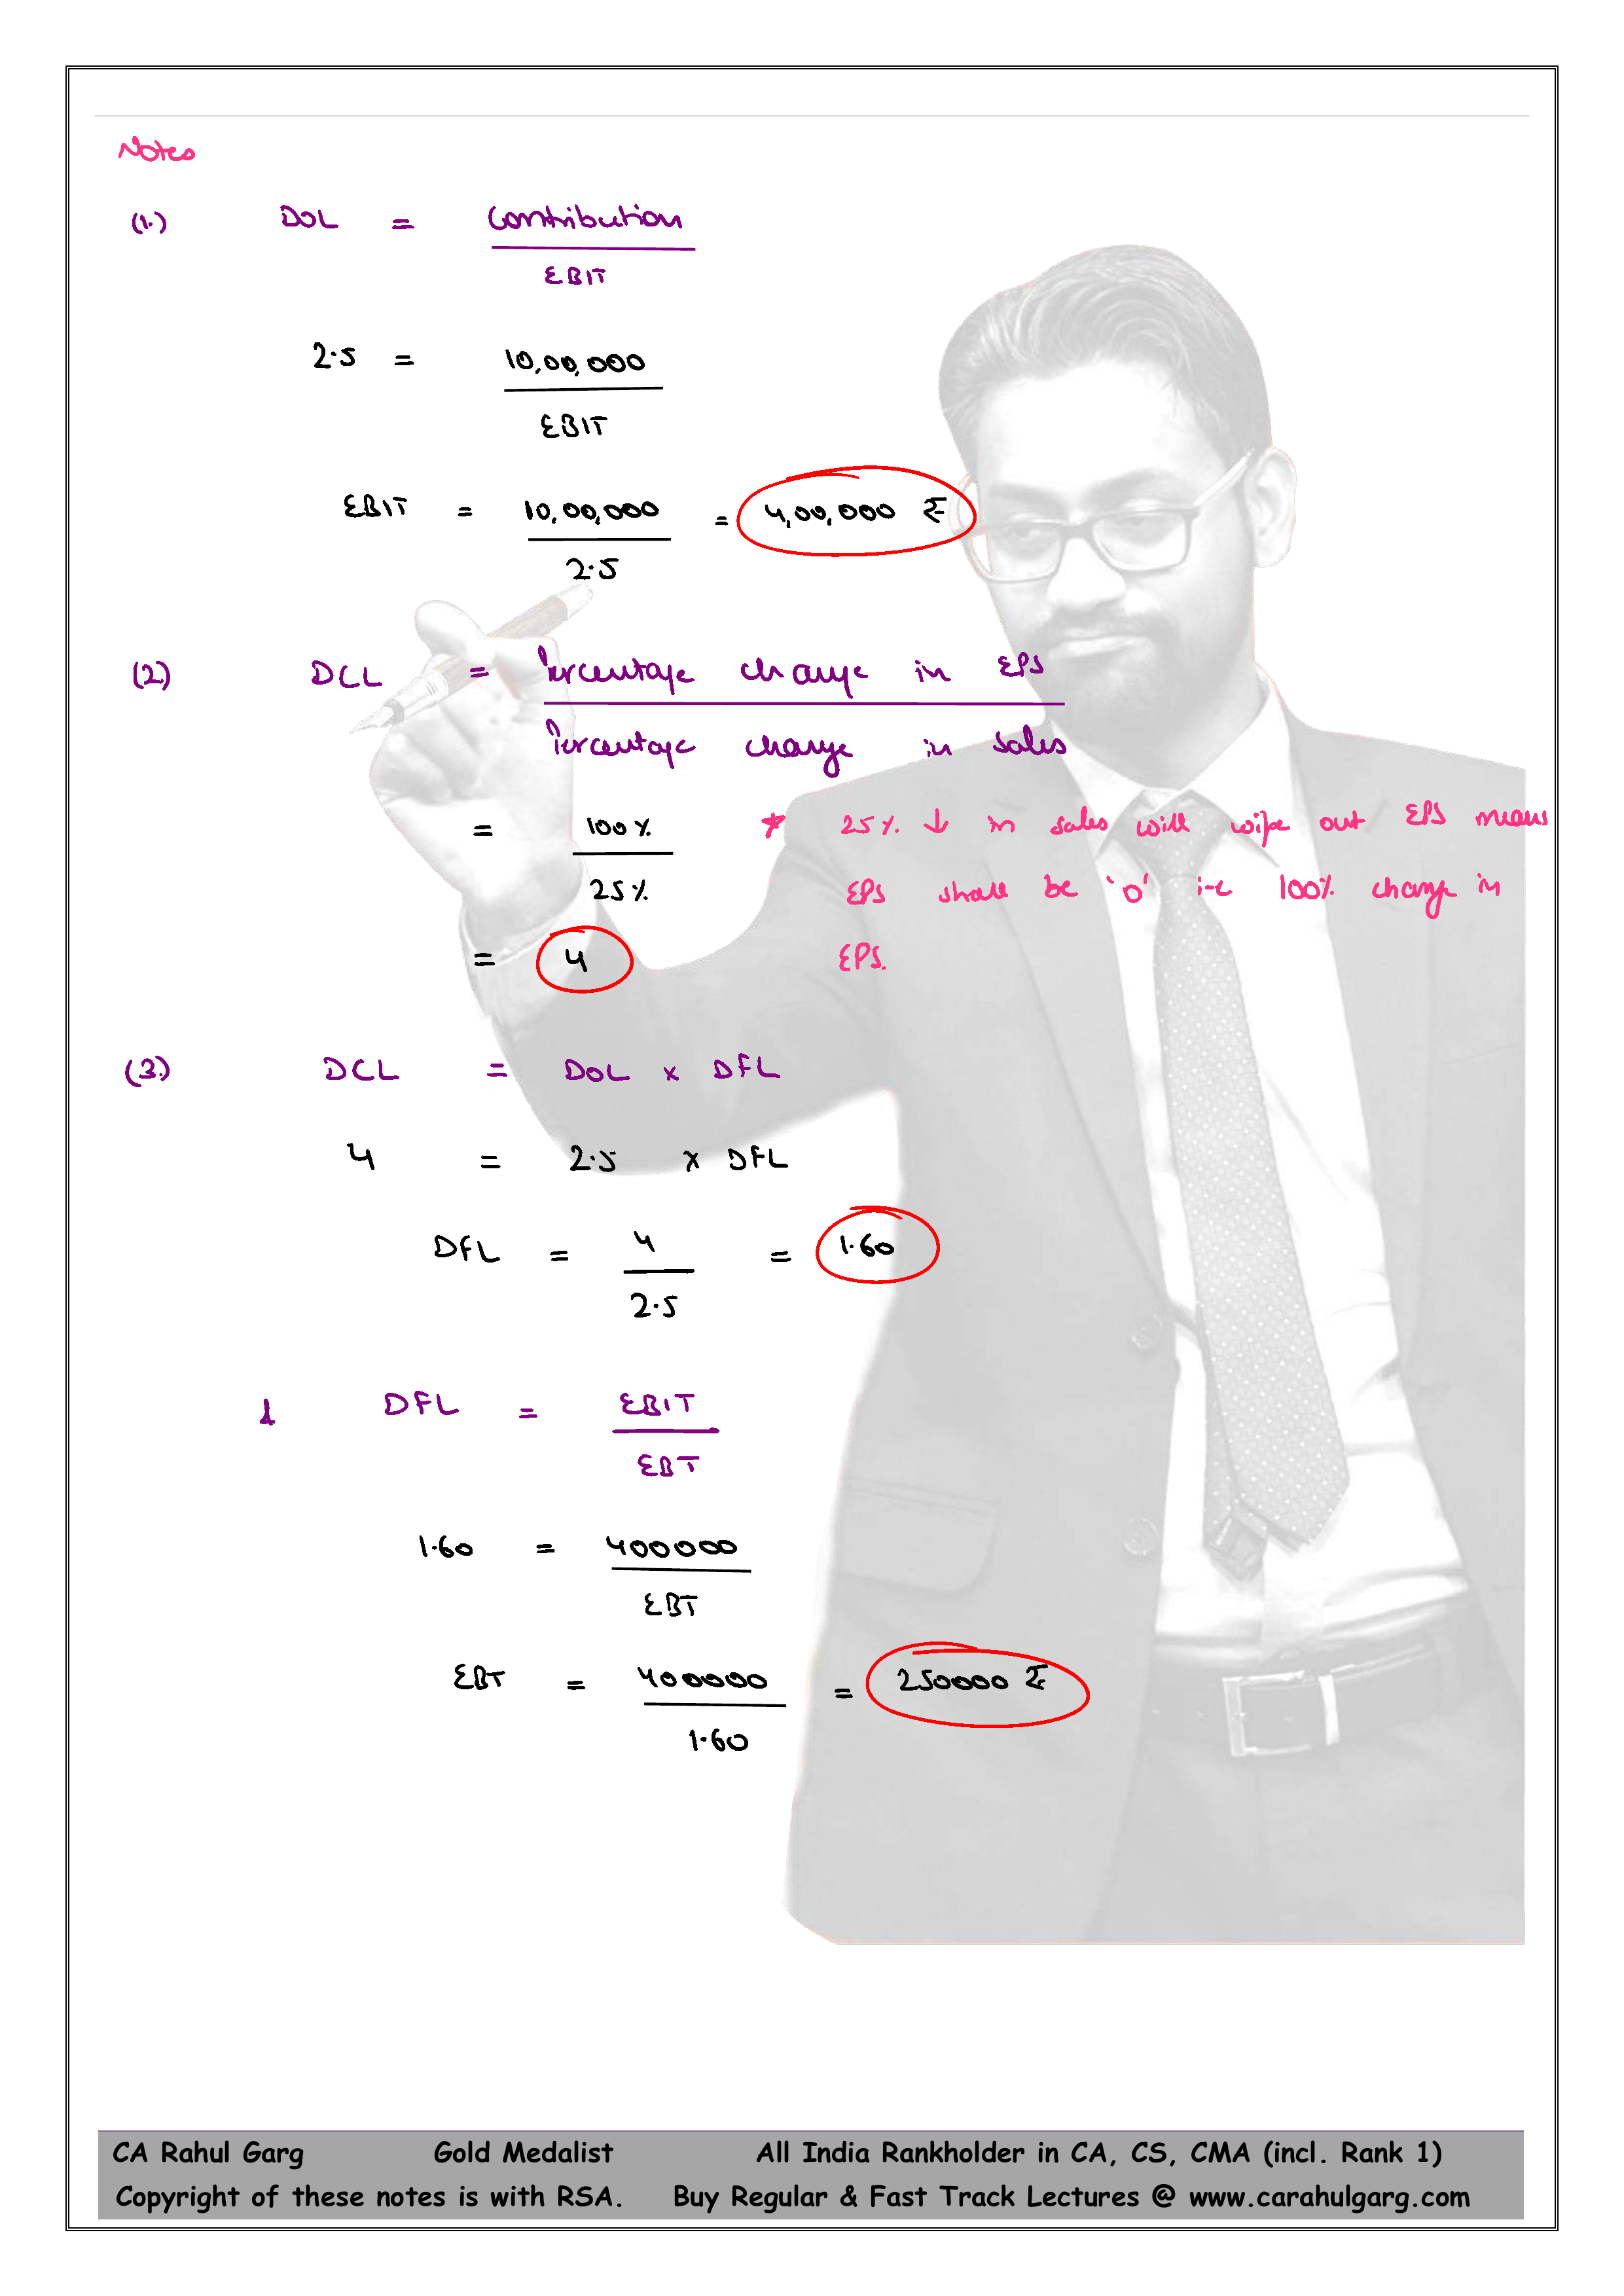 Notes
(1.) DOL = Contribution
EBIT
2.5 = 10,00,000
EBIT
EBIT = 10,00,000 = 4,00,000 ₹
2.5
(2) DCL = Percentage change in EPS
Percentage change in Sales
= 100% * 25% ↓ in sales will wipe out EPS means
25% EPS shall be '0' i.e 100% change in
= 4 EPS.
(3.) DCL = DOL x DFL
4 = 2.5 x DFL
DFL = 4 = 1.60
2.5
& DFL = EBIT
EBT
1.60 = 400000
EBT
EBT = 400000 = 250000 ₹
1.60
CA Rahul Garg Gold Medalist All India Rankholder in CA, CS, CMA (incl. Rank 1)
Copyright of these notes is with RSA. Buy Regular & Fast Track Lectures @ www.carahulgarg.com